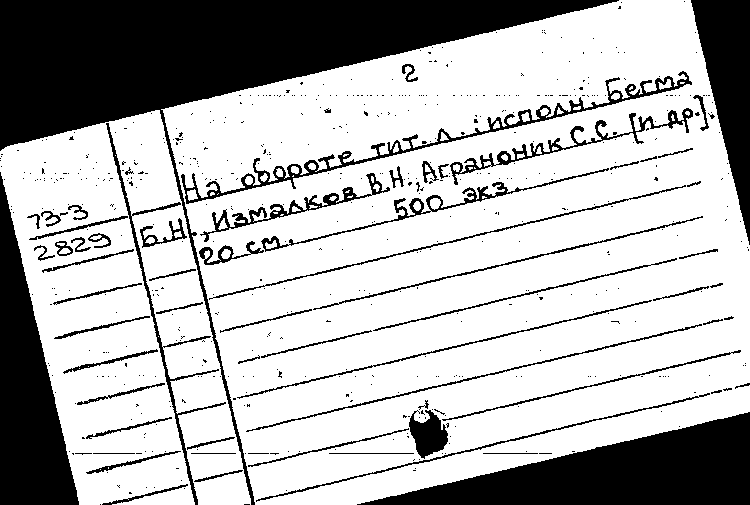 2
На обороте тит. л. : исполн. Бегма
73-3
Б.Н., Измалков В.Н., Аграноник С.С. [и др.].
2829
20 см. 500 экз.